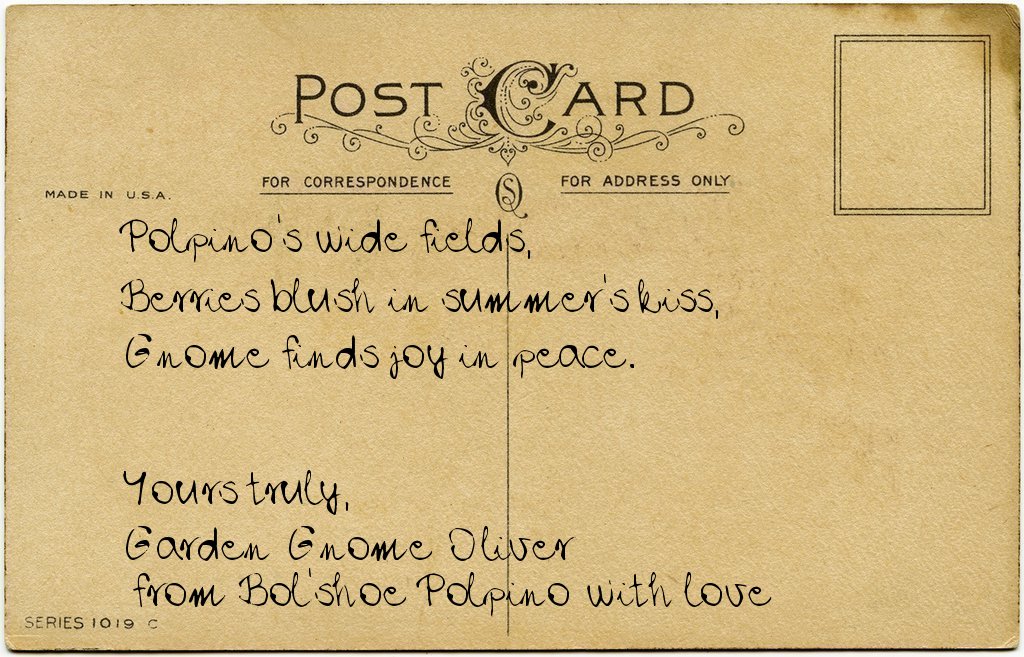 POST CARD
FOR CORRESPONDENCE
FOR ADDRESS ONLY
MADE IN U.S.A.
Polpino's wide fields,
Berries blush in summer's kiss,
Gnome finds joy in peace.
Yours truly,
Garden Gnome Oliver
from Bol'shoe Polpino with love
SERIES 1019 C